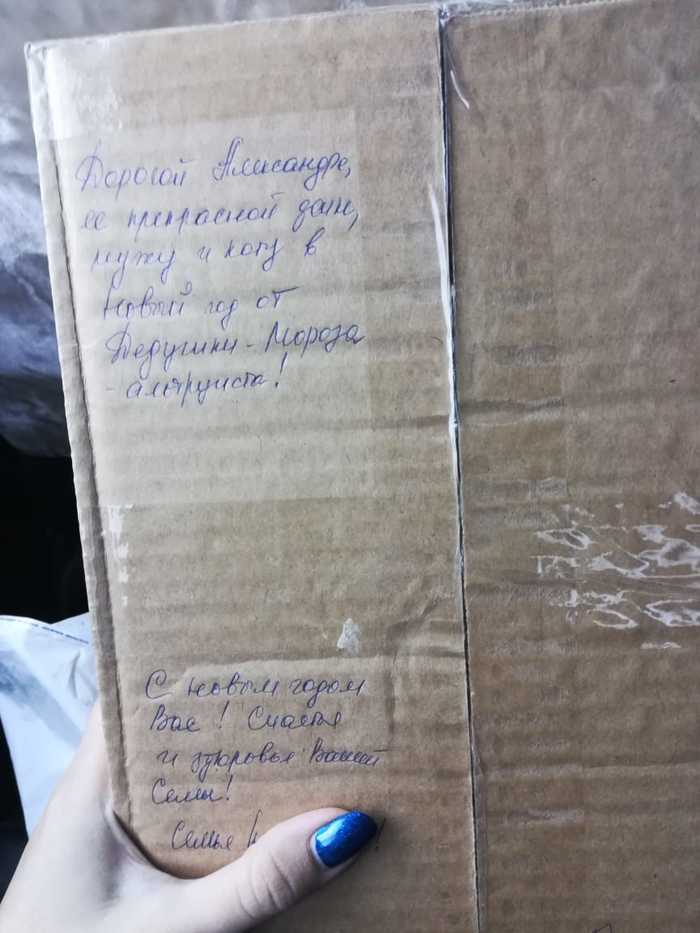 Дорогой Александре,
ее прекрасной дочи,
мужу и коту в
Новый год от
Дедушки-Мороза
-альтруиста!
С Новым годом
Вас! Счастья
и здоровья Вашей
Семьи!
Семье